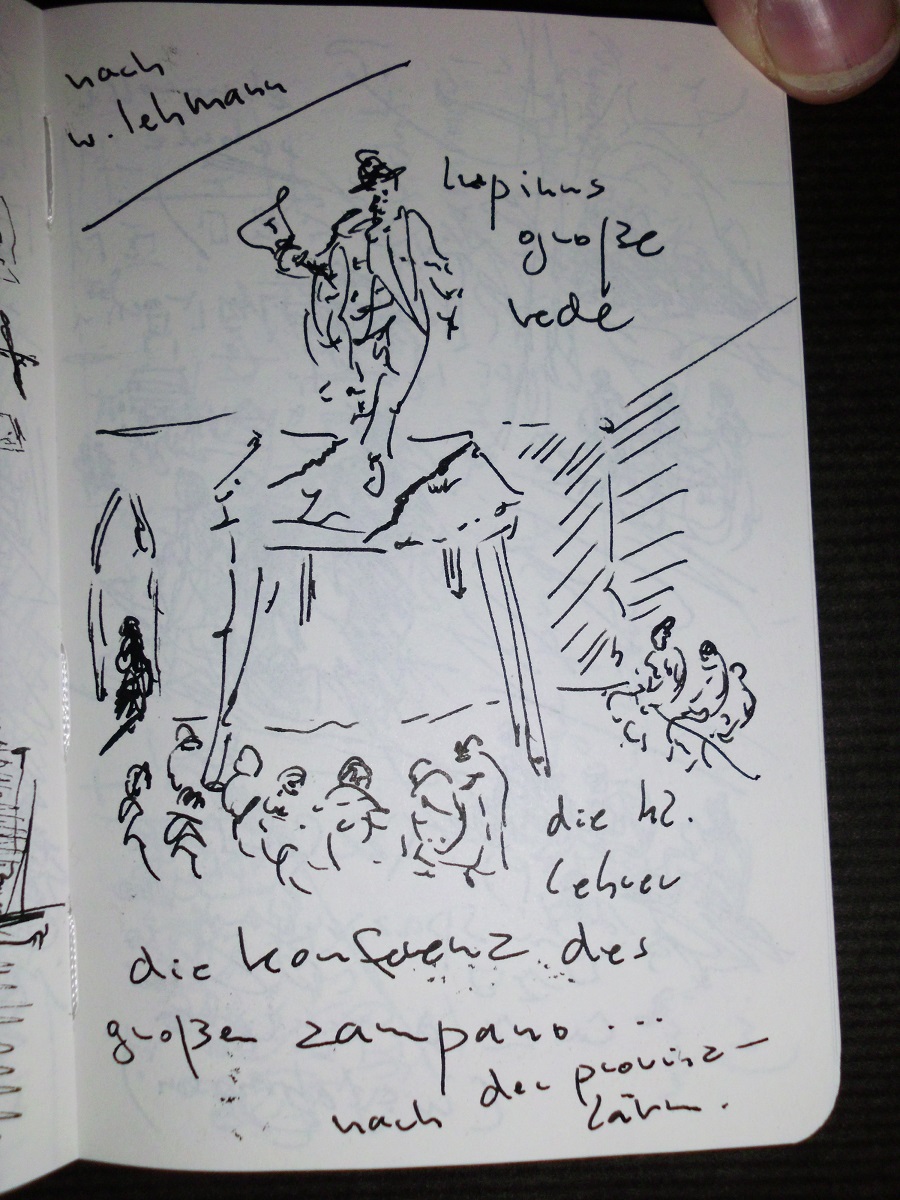 nach
w. lehmann
lupinus
große
rede
die hl.
lehrer
die konferenz des
großen zampano...
nach der provinz-
lärm.